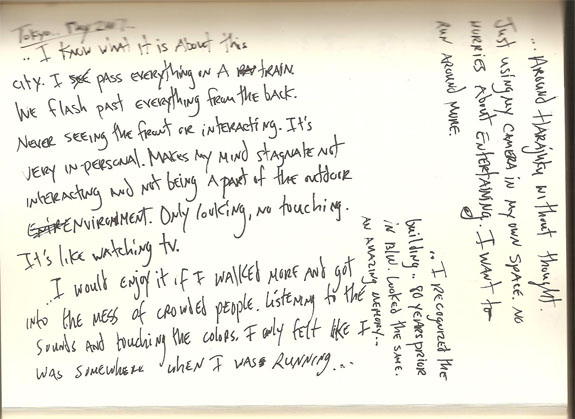 Tokyo May 2007.
.. I know what it is About this
city. I see pass everything on A train
We flash past everything from the back.
Never seeing the front or interacting. It's
very in-personal. Makes my mind stagnate not
interacting and not being a part of the outdoor
ENVIRONMENT. Only looking, no touching.
It's like watching tv.
.. I would enjoy it if I walked more and got
into the mess of crowded people. Listening to the
sounds and touching the colors. I only felt like I
was somewhere when I was RUNNING...
... Around Harajuku without thought.
Just using my camera in my own space. No
worries About Entertaining. I want to
run around more.
.. I recognized the
building. 80 years prior
in B/W. Looked the same.
An amazing memory..